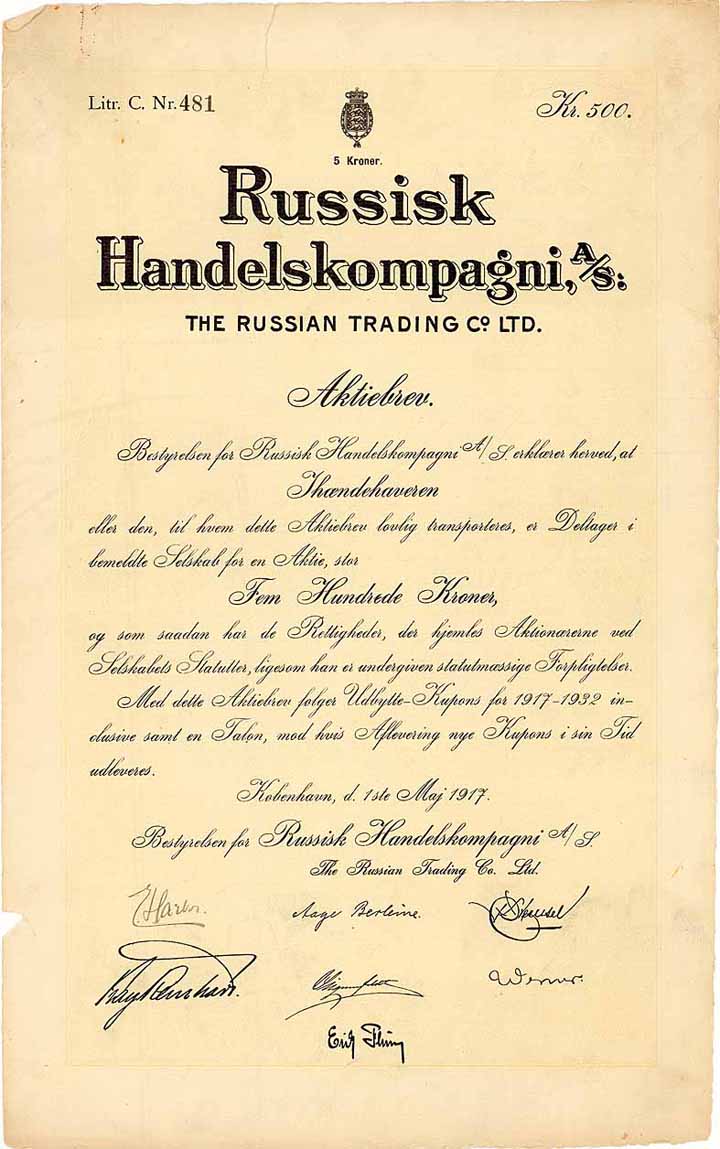 Litr. C. Nr. 481
Kr. 500.
5 Kroner.
Russisk
Handelskompagni, A/S:
THE RUSSIAN TRADING Co LTD.
Aktiebrev.
Bestyrelsen for Russisk Handelskompagni A/S. erklærer herved, at
Ihændehaveren
eller den, til hvem dette Aktiebrev lovlig transporteres, er Deltager i
bemeldte Selskab for en Aktie, stor
Fem Hundrede Kroner,
og som saadan har de Rettigheder, der hjemles Aktionærerne ved
Selskabets Statutter, ligesom han er undergiven statutmæssige Forpligtelser.
Med dette Aktiebrev følger Udbytte-Kupons for 1917-1932 in-
clusive samt en Talon, mod hvis Aflevering nye Kupons i sin Tid
udleveres.
København, d. 1ste Maj 1917.
Bestyrelsen for Russisk Handelskompagni A/S.
The Russian Trading Co. Ltd.
Aage Berleme.
Werner.